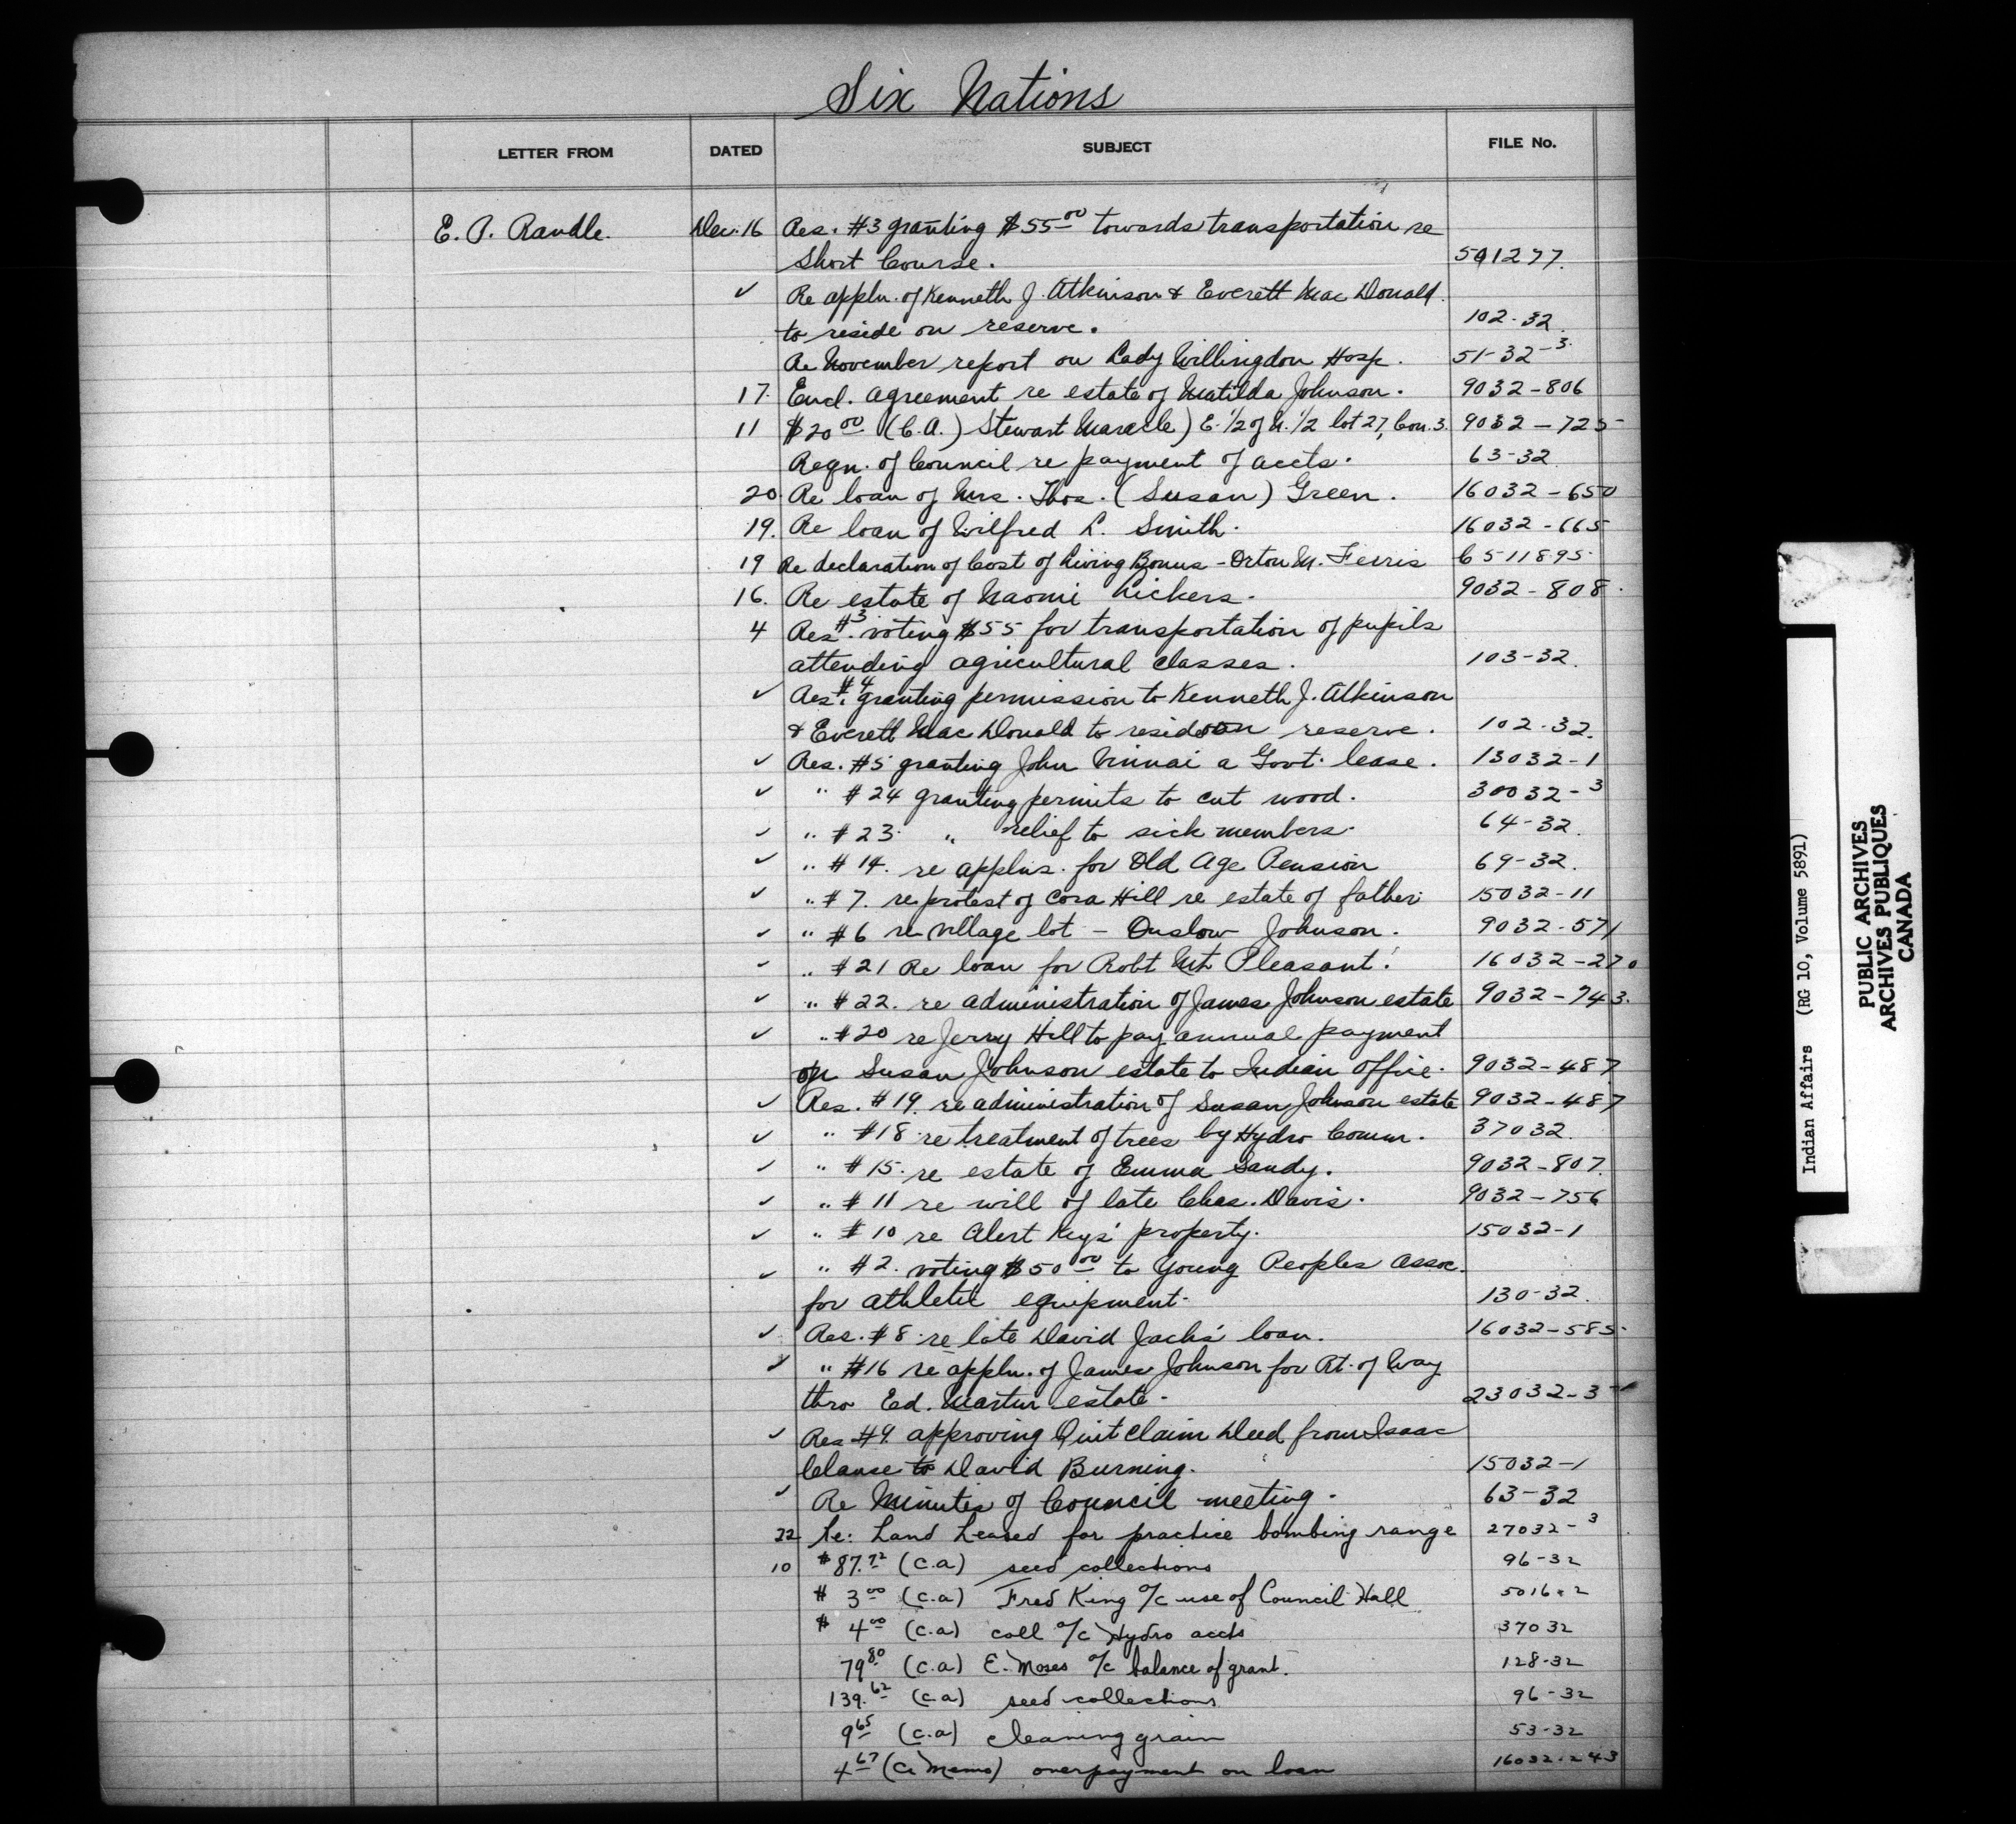 Six Nations
LETTER FROM DATED SUBJECT FILE No.
E. P. Randle. Dec. 16 Res. #3 granting $55.00 towards transportation re
Short Course. 501277.
✓ Re appln. of Kenneth J. Atkinson & Everett MacDonald
to reside on reserve. 102-32.
Re November report on Lady Willingdon Hosp. 51-32-3.
17. Encl. agreement re estate of Matilda Johnson. 9032-806
11 $20.00 (C.A.) Stewart Maracle) E. 1/2 of N. 1/2 lot 27, Con. 3. 9032-725
Reqn. of Council re payment of accts. 63-32.
20 Re loan of Mrs. Thos. (Susan) Green. 16032-650
19. Re loan of Wilfred L. Smith. 16032-665
19 Re declaration of Cost of Living Bonus - Orton M. Ferris C 511895.
16. Re estate of Naomi Lickers. 9032-808.
4 Res. #3 voting $55 for transportation of pupils
attending agricultural classes. 103-32.
✓ Res. #4 granting permission to Kenneth J. Atkinson
& Everett MacDonald to reside on reserve. 102-32.
✓ Res. #5 granting John a Govt. lease. 13032-1
✓ " #24 granting permits to cut wood. 30032-3
✓ " #23. " relief to sick members. 64-32.
✓ " #14. re applns. for Old Age Pension 69-32.
✓ " #7. re protest of Cora Hill re estate of father. 15032-11
✓ " #6 re Village lot - Onslow Johnson. 9032-571
✓ " #21 Re loan for Robt Mt. Pleasant. 16032-270
✓ " #22. re administration of James Johnson estate 9032-743.
✓ " #20 re Jerry Hill to pay annual payment
on Susan Johnson estate to Indian Office. 9032-487
✓ Res. #19. re administration of Susan Johnson estate 9032-487
✓ " #18 re treatment of trees by Hydro Comm. 37032.
✓ " #15. re estate of Emma Sandy. 9032-807.
✓ " #11 re will of late Chas. Davis. 9032-756
✓ " #10 re Alert Keys' property. 15032-1
✓ " #2. voting $50.00 to Young Peoples Assoc.
for athletic equipment. 130-32.
✓ Res. #8 re late David Jacks' loan. 16032-585.
✓ " #16 re appln. of James Johnson for Rt. of Way
thro Ed. Martin estate. 23032-3
✓ Res #9. approving Quit Claim Deed from Isaac
Clause to David Burning. 15032-1
✓ Re Minutes of Council meeting. 63-32
22 Re: Land Leased for practice bombing range 27032-3
10 $87.72 (C.A) seed collections 96-32
$ 3.00 (C.A) Fred King a/c use of Council Hall
$ 4.00 (C.A) coll a/c Hydro accts 37032
79.80 (C.A) E. Moses a/c balance of grant. 128-32
139.62 (C.A) seed collections 96-32
9.65 (C.A) cleaning grain 53-32
4.67 (Cr Memo) overpayment on loan 16032-243
Indian Affairs (RG 10, Volume 5891)
PUBLIC ARCHIVES
ARCHIVES PUBLIQUES
CANADA